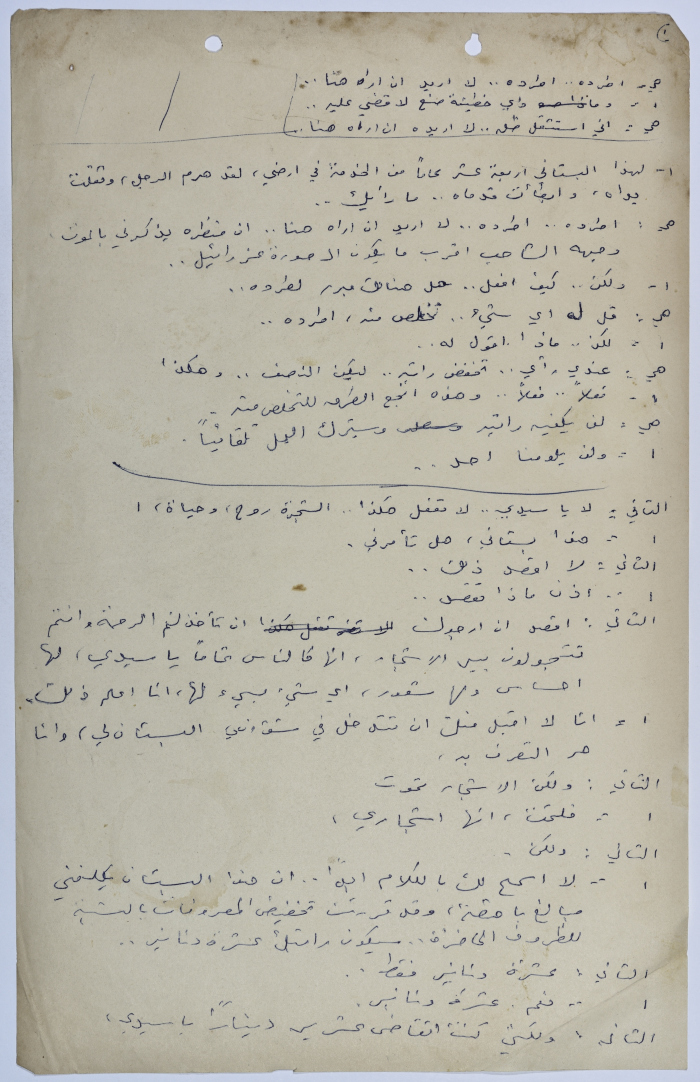 ١
هي = اطرده .. اطرده .. لا اريد ان اراه هنا ..
ا = واي خطيئة صنع لاقضي عليه ..
هي = اني استثقل ظله .. لا اريده ان اراه هنا ..
ا - لهذا البستاني اربعة عشر عاماً من الخدمة في ارضي، لقد هرم الرجل، وثقلت
يداه، وابطأت قدماه .. ما رأيك ..
هي : اطرده .. اطرده .. لا اريد ان اراه هنا .. ان منظره يذكرني بالموت.
وجهه الشاحب اقرب ما يكون الى صورة عزرائيل ..
ا - ولكن .. كيف افعل .. هل هناك مبرر لطرده ..
هي : قل له اي شيء .. تخلص منه، اطرده ..
ا = لكن .. ماذا اقول له ..
هي : عندي رأي .. تخفض راتبه .. ليكن النصف .. وهكذا
ا - فعلاً .. فعلاً .. وهذه انجع الطرق للتخلص منه .
هي = لن يكفيه راتبه وسيترك العمل تلقائياً .
ا = ولن يلومنا احد ..
الثاني = لا يا سيدي .. لا تفعل هكذا .. الشجرة روح، وحياة، ا
ا = هذا بستاني، هل تأمرني .
الثاني = لا اقصد ذلك ..
ا .. اذن ماذا تقصد ..
الثاني : اقصد ان ارجوك ان تأخذكم الرحمة وانتم
تتجولون بين الاشجار، انها كالناس تماماً يا سيدي، لها
احساس ولها شعور، اي شيء يسيء لها، انا اعلم ذلك.
ا = انا لا اقبل منك ان تتدخل في شؤوني البستان لي، وانا
حر التصرف به،
الثاني : ولكن الاشجار تموت
ا = فلتمت، انها اشجاري،
الثاني : ولكن -
ا = لا اسمح لك بالكلام ابداً .. ان هذا البستان يكلفني
مبالغ باهظة، وقد قررت تخفيض المصروفات بالنسبة
للظروف الحاضرة .. سيكون راتبك عشرة دنانير ..
الثاني : عشرة دنانير فقط ..
ا = نعم . عشرة دنانير .
الثاني : ولكني كنت اتقاضى عشرين ديناراً يا سيدي،